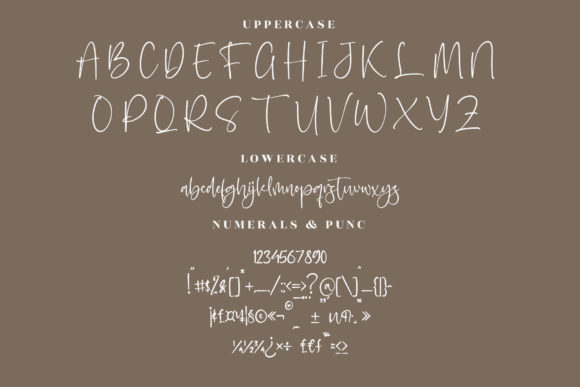 UPPERCASE
ABCDEFGHIJKLMN
OPQRSTUVWXYZ
LOWERCASE
abcdefghijklmnopqrstuvwxyz
NUMERALS & PUNC
1234567890
!"#$%&'()*+,-./:;<=>?@[\]^_{|}~
¡¢£¤¥¦§©«¬®¯°±
¼½¾¿×÷